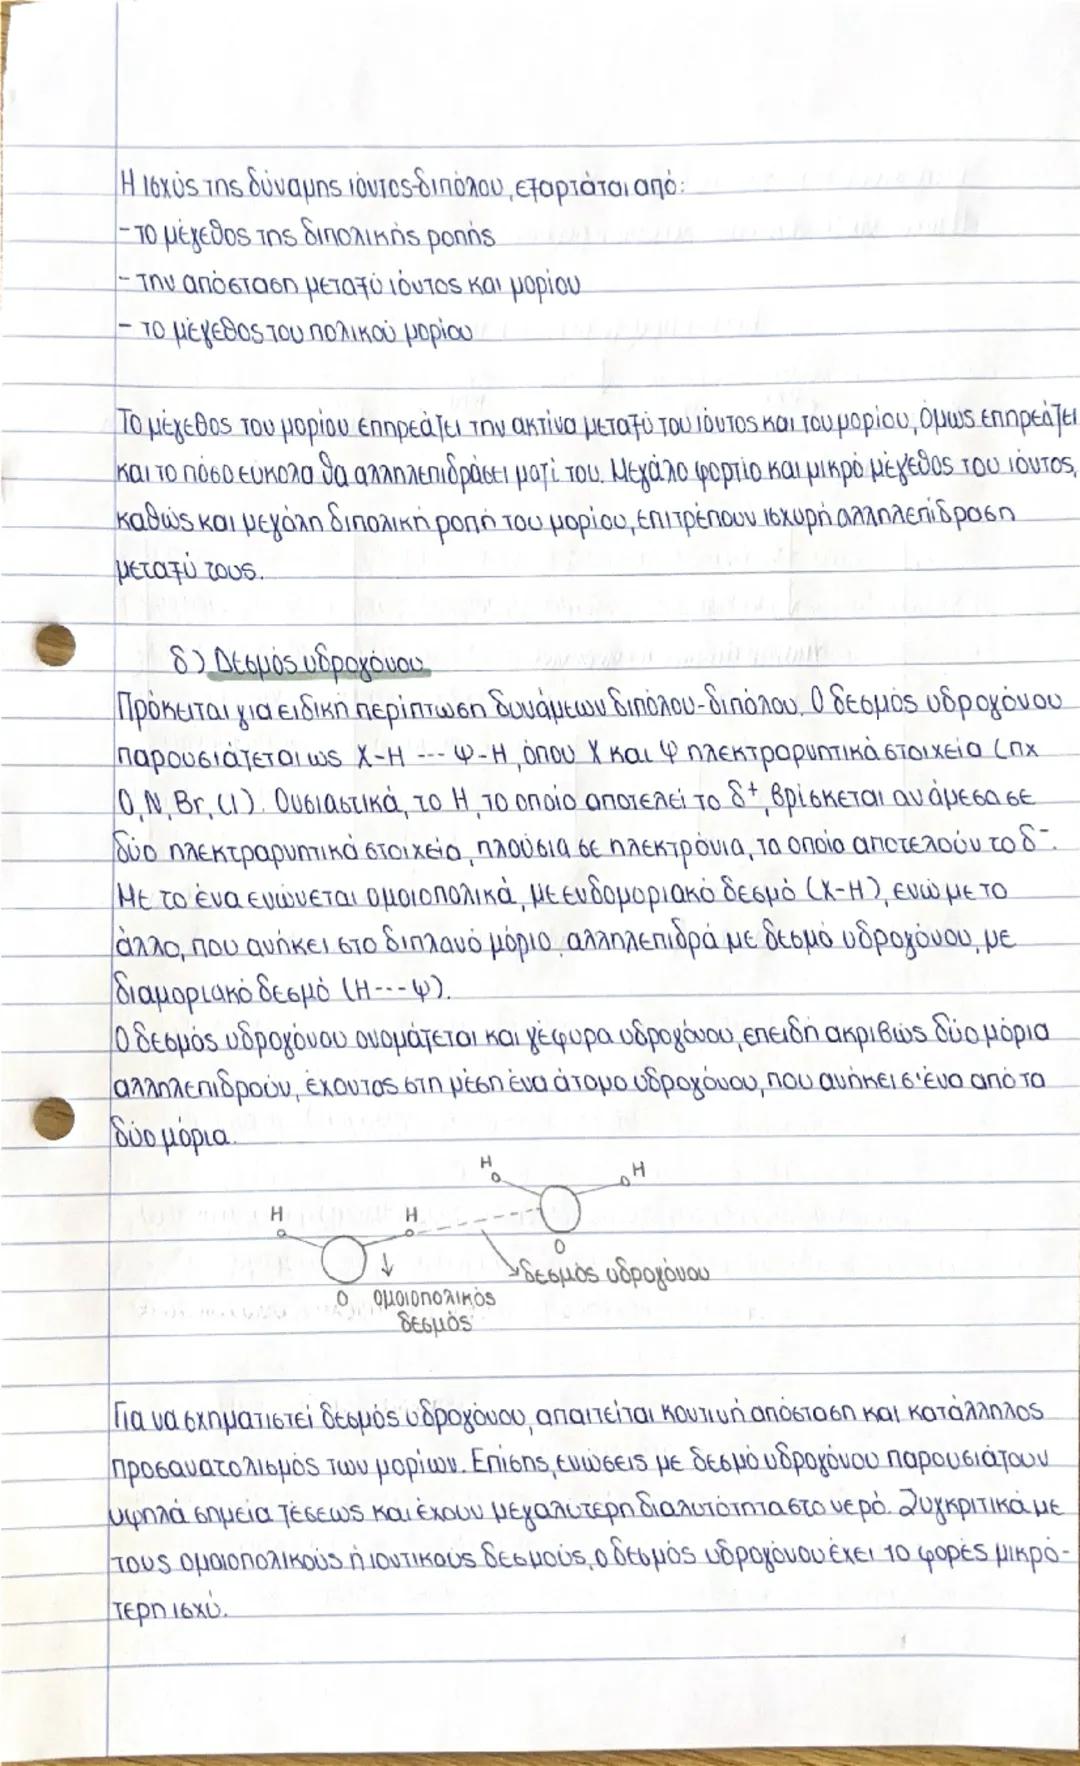 Η ισχύς της δύναμης ιόντος-διπόλου, εξαρτάται από:
- το μέγεθος της διπολικής ροπής
- την απόσταση μεταξύ ιόντος και μορίου
- το μέγεθος του πολικού μορίου
Το μέγεθος του μορίου επηρεάζει την ακτίνα μεταξύ του ιόντος και του μορίου, όμως επηρεάζει
και το πόσο εύκολα θα αλληλεπιδράσει μαζί του. Μεγάλο φορτίο και μικρό μέγεθος του ιόντος,
καθώς και μεγάλη διπολική ροπή του μορίου, επιτρέπουν ισχυρή αλληλεπίδραση
μεταξύ τους.
δ) Δεσμός υδρογόνου
Πρόκειται για ειδική περίπτωση δυνάμεων διπόλου-διπόλου. Ο δεσμός υδρογόνου
παρουσιάζεται ως Χ-Η --- Ψ-Η, όπου Χ και Ψ ηλεκτραρνητικά στοιχεία (πχ
O, N, Br, Cl). Ουσιαστικά, το Η, το οποίο αποτελεί το δ+, βρίσκεται ανάμεσα σε
δύο ηλεκτραρνητικά στοιχεία, πλούσια σε ηλεκτρόνια, τα οποία αποτελούν το δ-.
Με το ένα ενώνεται ομοιοπολικά, με ενδομοριακό δεσμό (Χ-Η), ενώ με το
άλλο, που ανήκει στο διπλανό μόριο, αλληλεπιδρά με δεσμό υδρογόνου, με
διαμοριακό δεσμό (Η---Ψ).
Ο δεσμός υδρογόνου ονομάζεται και γέφυρα υδρογόνου, επειδή ακριβώς δύο μόρια
αλληλεπιδρούν, έχοντας στη μέση ένα άτομο υδρογόνου, που ανήκει σ' ένα από τα
δύο μόρια.
H H
H H
O
δεσμός υδρογόνου
O ομοιοπολικός
δεσμός
Για να σχηματιστεί δεσμός υδρογόνου, απαιτείται κοντινή απόσταση και κατάλληλος
προσανατολισμός των μορίων. Επίσης, ενώσεις με δεσμό υδρογόνου παρουσιάζουν
υψηλά σημεία ζέσεως και έχουν μεγαλύτερη διαλυτότητα στο νερό. Συγκριτικά με
τους ομοιοπολικούς ή ιοντικούς δεσμούς, ο δεσμός υδρογόνου έχει 10 φορές μικρό-
τερη ισχύ.